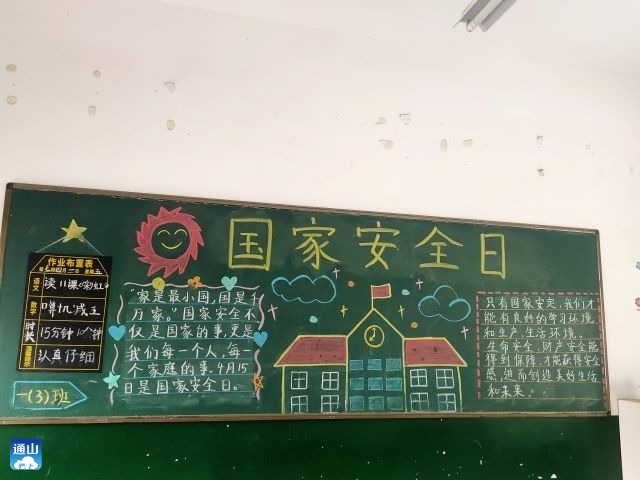 国家安全日
作业布置表
语文
读11课《彩虹》
数学
时长
15分钟 10分钟
认真仔细
一(3)班
"家是最小国,国是千
万家。"国家安全不
仅是国家的事,更是
我们每一个人,每一
个家庭的事,4月15
日是国家安全日。
只有国家安定,我们才
能有良好的学习环境
和生产、生活环境。
生命安全、财产安全能
得到保障,才能获得安全
感,进而创造美好生活
和未来。
通山